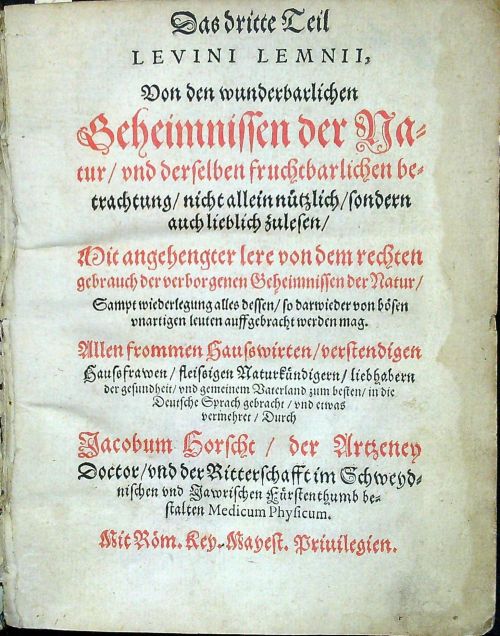 Das dritte Teil
LEVINI LEMNII,
Von den wunderbarlichen
Geheimnissen der Na-
tur/ vnd derselben fruchtbarlichen be-
trachtung/ nicht allein nützlich/ sondern
auch lieblich zulesen/
Mit angehengter lere von dem rechten
gebrauch der verborgenen Geheimnissen der Natur/
Sampt wiederlegung alles dessen/ so darwieder von bösen
vnartigen leuten auffgebracht werden mag.
Allen frommen Hausswirten/ verstendigen
Haussfrawen/ fleissigen Naturkündigern/ liebhabern
der gesundheit/ vnd gemeinem Vaterland zum besten/ in die
Deutsche Sprach gebracht/ vnd etwas
vermehret/ Durch
Jacobum Horscht/ der Artzeney
Doctor/ vnd der Ritterschafft im Schweyd-
nischen vnd Jawrischen Fürstenthumb be-
stalten Medicum Physicum.
Mit Röm. Key. Mayest. Priuilegien.